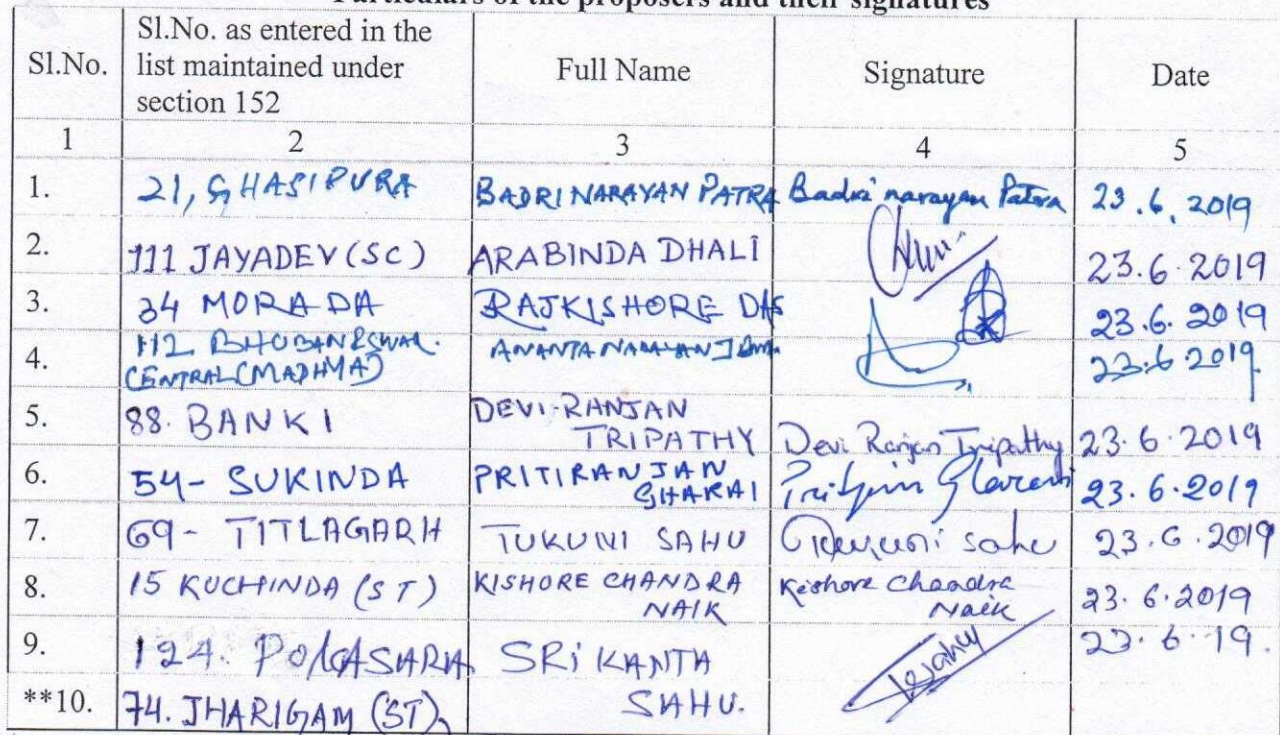 Particulars of the proposers and their signatures
Sl.No. Sl.No. as entered in the list maintained under section 152 Full Name Signature Date
1 2 3 4 5
1. 21, GHASIPURA BADRI NARAYAN PATRA Badri narayan Patra 23.6.2019
2. 111 JAYADEV (SC) ARABINDA DHALI 23.6.2019
3. 34 MORADA RAJKISHORE DAS 23.6.2019
4. 112 BHUBANESWAR. CENTRAL (MADHYA) ANANTA NARAYAN JENA 23.6 2019.
5. 88. BANKI DEVI RANJAN TRIPATHY Devi Ranjan Tripathy 23.6.2019
6. 54- SUKINDA PRITIRANJAN GHARAI 23.6.2019
7. 69- TITLAGARH TUKUNI SAHU sahu 23.6.2019
8. 15 KUCHINDA (ST) KISHORE CHANDRA NAIK Kishore Chandra Naik 23.6.2019
9. 124. POLASARA SRIKANTA SAHU. 23.6.19.
**10. 74. JHARIGAM (ST)